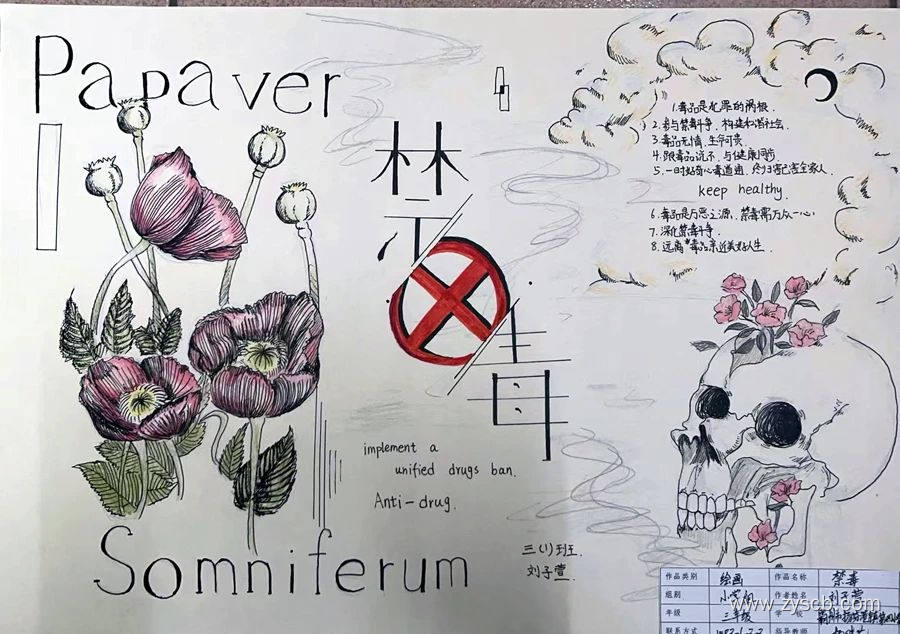 Papaver
禁
毒
1.毒品是犯罪的祸根.
2.参与禁毒斗争、构建和谐社会.
3.毒品无情,生命可贵
4.跟毒品说不,与健康同步
5.一时好奇心毒道通,终归害己害全家人.
keep healthy.
6.毒品是万恶之源,禁毒需万众一心
7.深化禁毒斗争.
8.远离毒品亲近美好人生.
implement a
unified drugs ban.
Anti-drug.
Somniferum
三(1)班.
刘子萱.
作品类别 绘画 作品名称 禁毒
组别 小学组 作者姓名 刘子萱
年级 三年级 学 校
联系方式 指导教师
www.zyscb.com